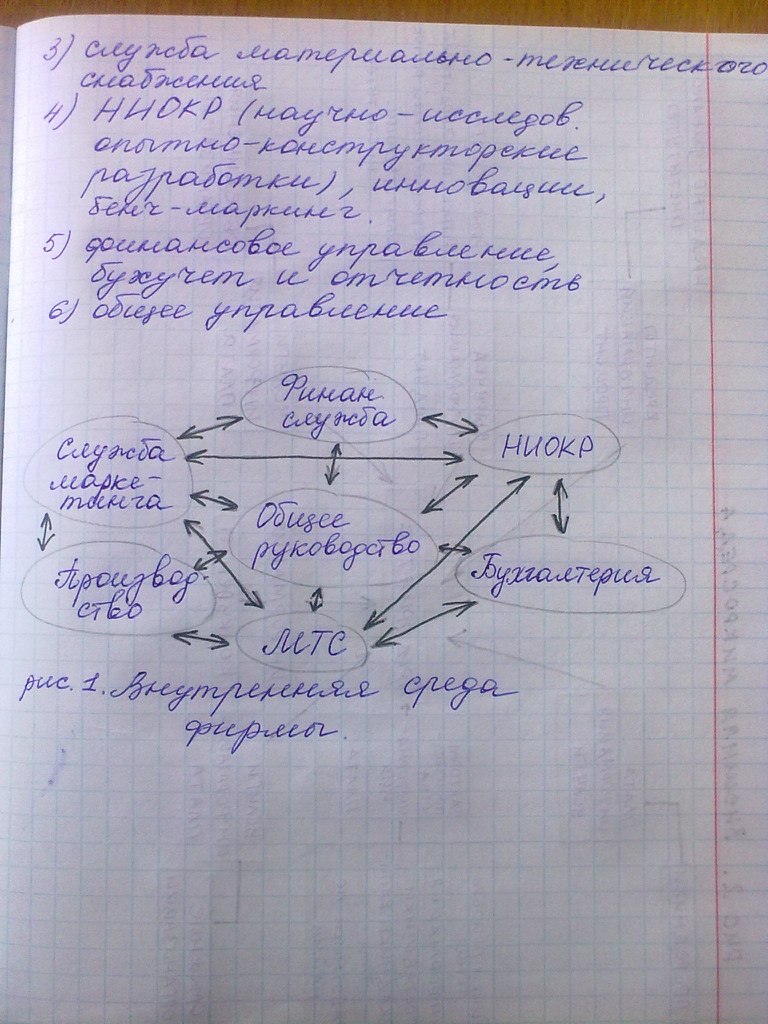 3) служба материально-технического
снабжения
4) НИОКР (научно-исследов.
опытно-конструкторские
разработки), инновации,
бенч-маркинг.
5) финансовое управление,
бухучет и отчетность
6) общее управление
Финан
служба
Служба
марке-
тинга
НИОКР
Общее
руководство
Производ-
ство
Бухгалтерия
МТС
рис. 1. Внутренняя среда
фирмы.